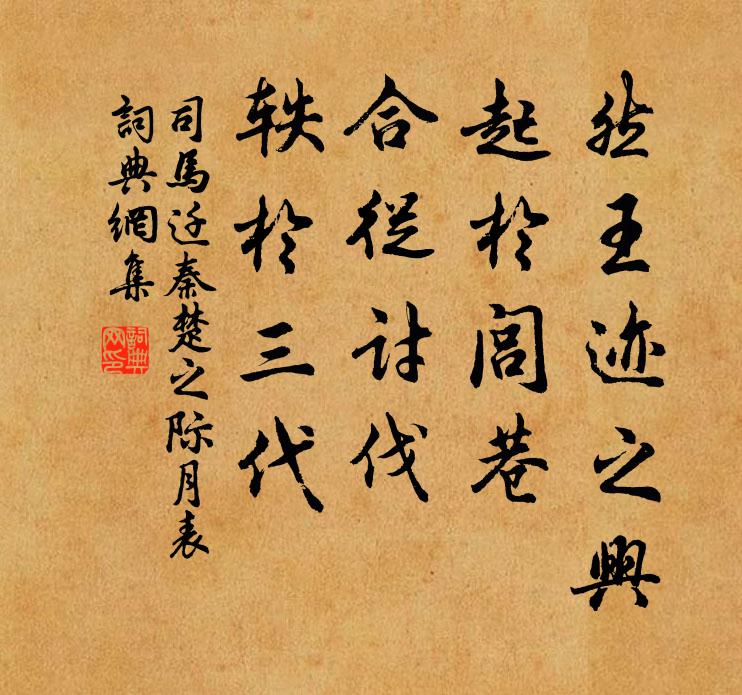 然王迹之興
起於閭巷
合從討伐
轶於三代
司馬迁秦楚之际月表
詞典網集
詞典网印